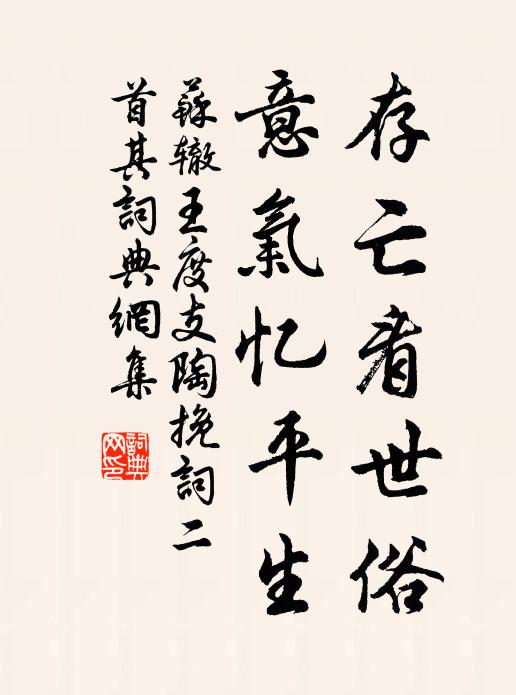 存亡看世俗
意氣忆平生
蘇辙王度支陶挽詞二
首其詞典網集
詞典網印